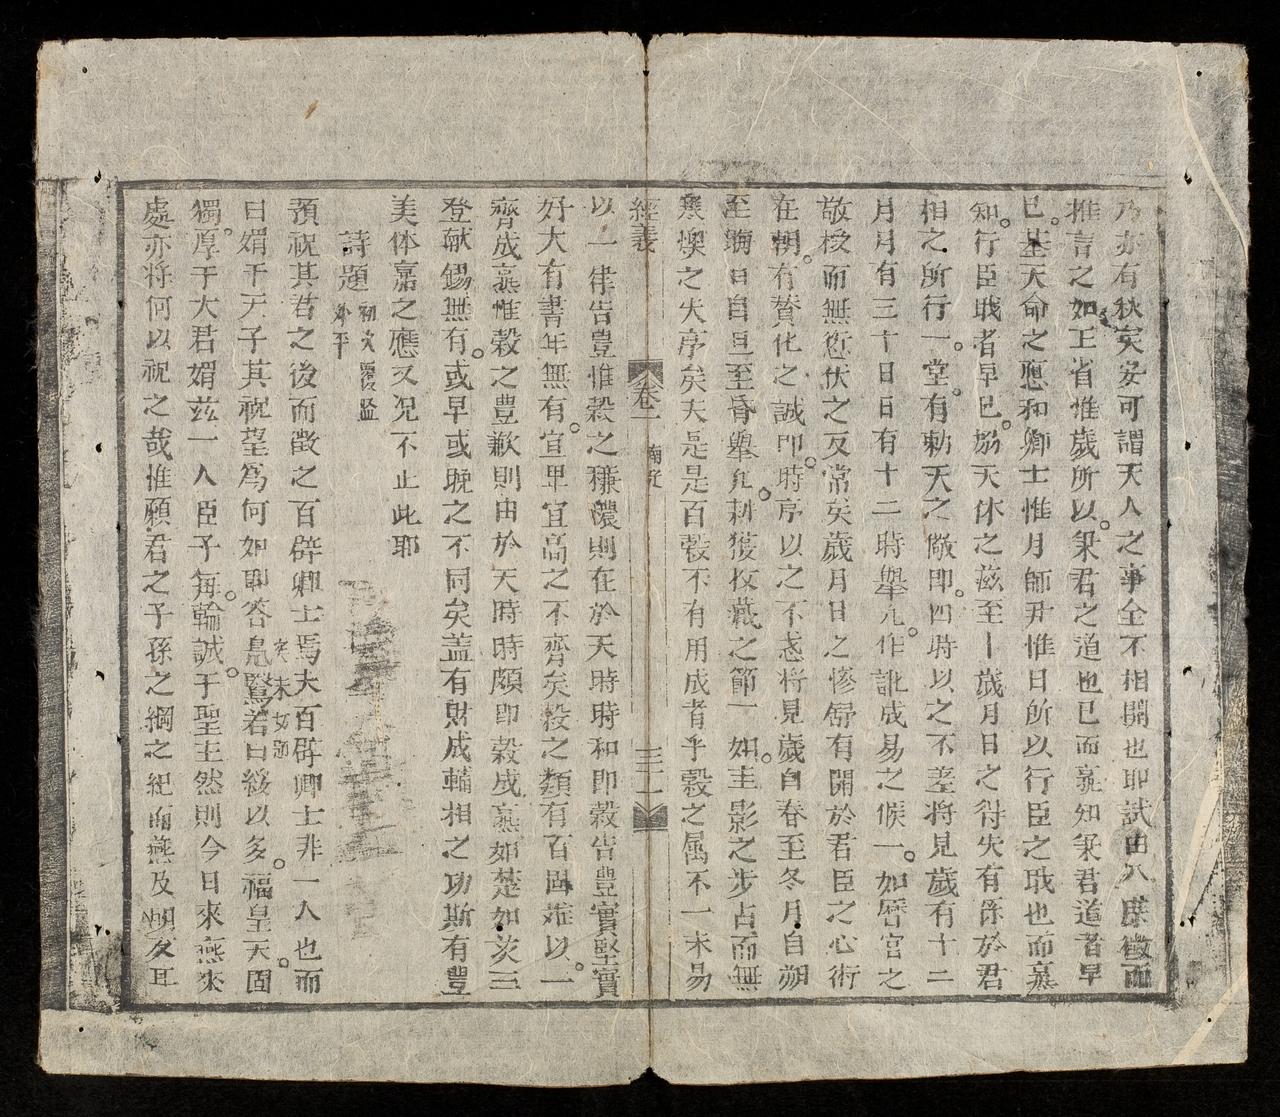 乃亦有秋矣安可謂天人之事全不相關也耶試由八庶徵而
推言之如王省惟歲所以秉君之道也已而豈知秉君道者早
已基天命之應和卿士惟月師尹惟日所以行臣之职也而豈
知行臣职者早已协天休之茲至一歲月日之得失有係於君
相之所行一堂有勅天之儆即四時以之不差將見歲有十二
月月有三十日日有十二時舉凡作訛成易之候一如曆宫之
敬授而無愆伏之反常矣歲月日之慘舒有関於君臣之心術
在朝有賛化之誠即時序以之不忒將見歲自春至冬月自朔
至晦日自旦至昏舉凡耕獲收藏之節一如圭影之步占而無
寒燠之失序矣夫是是百榖不有用成者乎榖之属不一未易
經義
卷一
三十一
以一律告豊惟榖之穠濃則在於天時時和即榖告豊實堅實
好大有書年無有宜早宜高之不齊矣榖之類有百固难以一
齊成熹惟榖之豊歉則由於天時時順即榖成熹如楚如茨三
登献錫無有或早或晚之不同矣盖有財成輔相之功斯有豐
美休嘉之應又况不止此耶
詩題
預祝其君之後而徴之百辟卿士焉夫百辟卿士非一人也而
曰媚于天子其祝望為何如耶答鳧鷖若曰綏以多福皇天固
獨厚于大君媚兹一人臣子每輸誠于聖主然則今日來燕來
處亦将何以祝之哉惟願君之子孫之綱之紀而燕及朋友耳